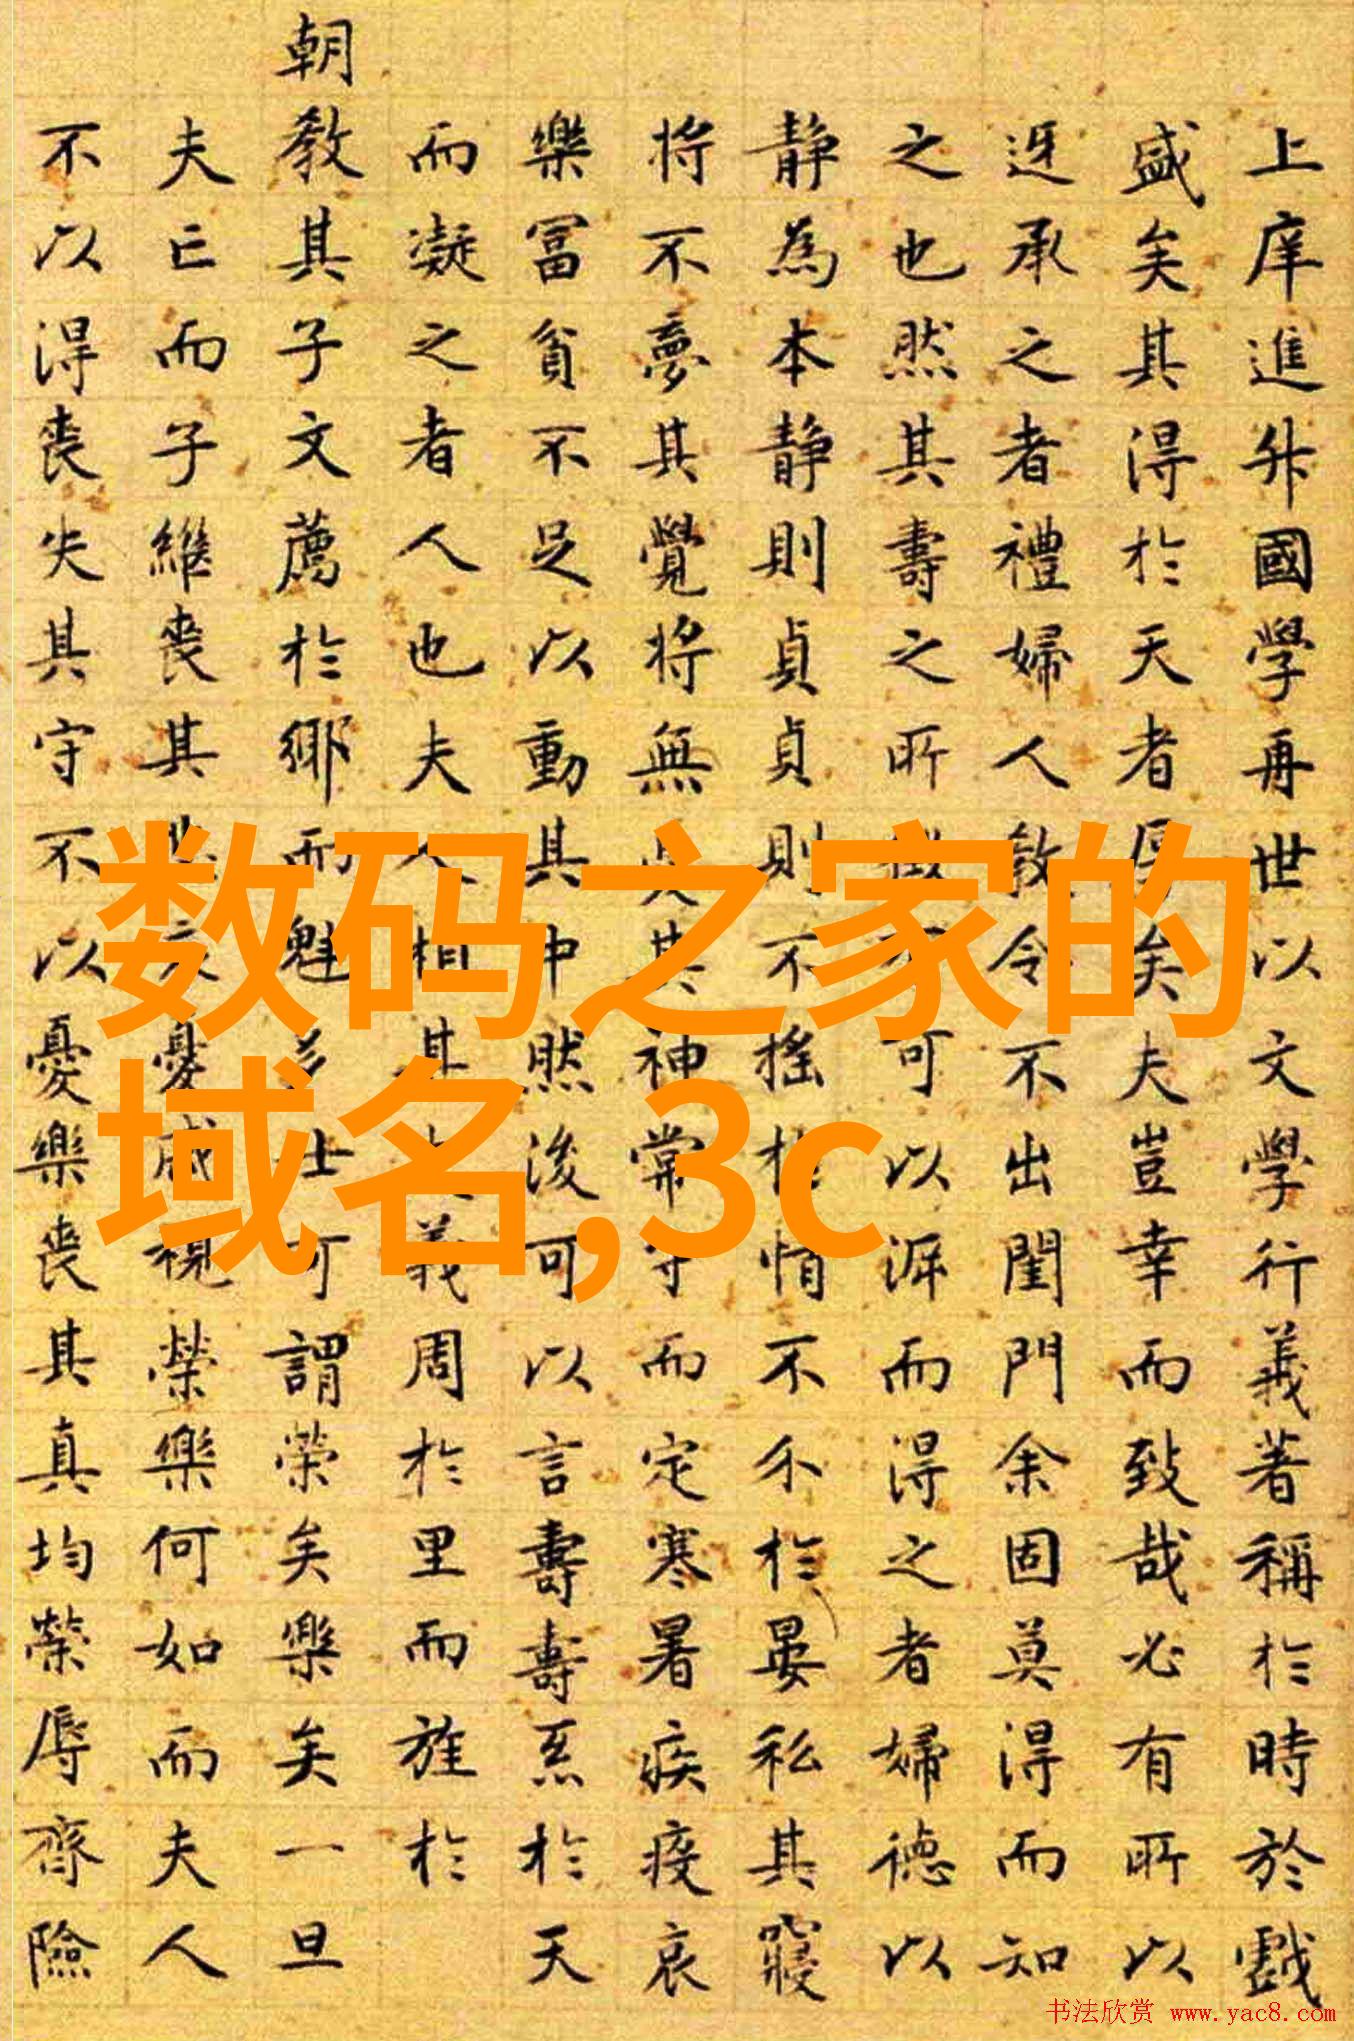 上庠進升國學再世以文學行義著稱於時於戲
盛矣其得於天者厚矣夫豈幸而致哉必有所以
迓承之者禮婦人教令不出閨門余固莫得而知
之也然其壽之所 可以涯而得之者婦德以
静為本静則貞貞則不搖於情不尒於晏私其寢
将不夢其覺将無 其神常守而定寒暑疾疫哀
樂冨貧不足以動其中然後可以言壽壽系於天
而凝之者人也夫人相其 義周於里而旌於
朝教其子文薦於鄉而魁多士可謂榮矣樂矣一旦
夫亡而子繼喪其 哀憂戚視榮樂何如而夫人
不以得喪失其守不以憂樂喪其真均榮辱齊險
数码之家的
域名,3c
书法欣赏 www.yac8.com